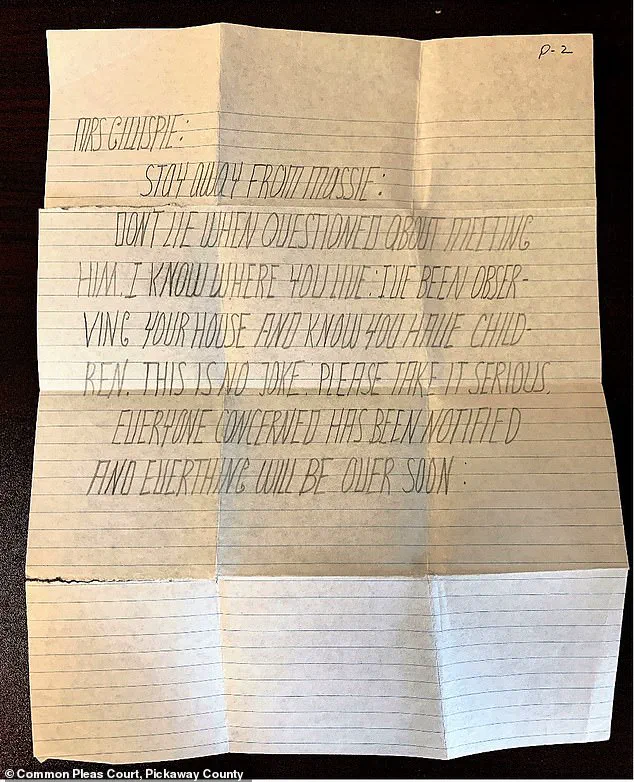 P-2
MRS GILLISPIE:
STAY AWAY FROM MASSIE:
DON'T LIE WHEN QUESTIONED ABOUT MEETING
HIM. I KNOW WHERE YOU LIVE: I'VE BEEN OBSER-
VING YOUR HOUSE AND KNOW YOU HAVE CHILD-
REN. THIS IS NO JOKE. PLEASE TAKE IT SERIOUS.
EVERYONE CONCERNED HAS BEEN NOTIFIED
AND EVERTHING WILL BE OVER SOON.
© Common Pleas Court, Pickaway County